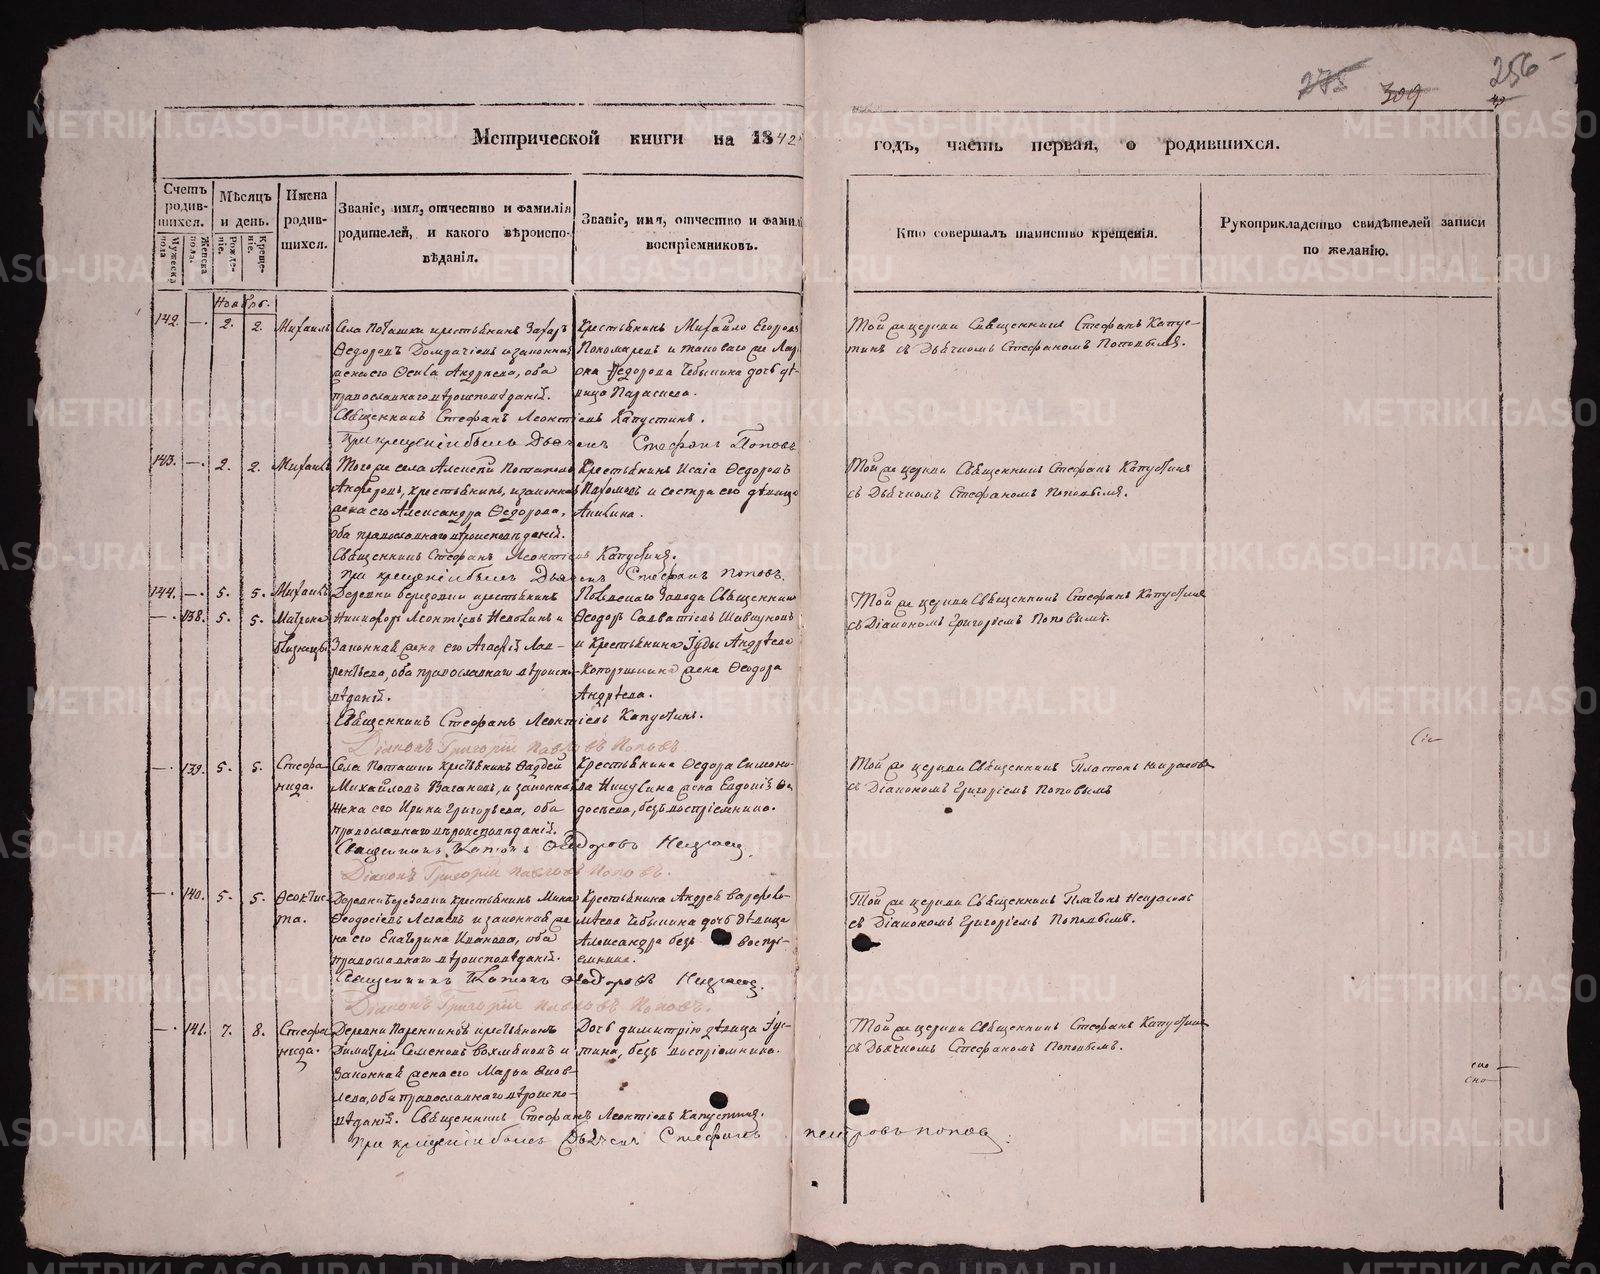 275 309 256
Метрической книги на 1842
годъ, часть первая, о родившихся.
Счетъ родившихся.
Мужеска пола
Женска пола.
Мѣсяцъ и день.
Рожденіе.
Крещеніе.
Имена родившихся.
Званіе, имя, отчество и фамилія родителей, и какого вѣроисповѣданія.
Званіе, имя, отчество и фамилі
воспріемниковъ.
Кто совершалъ таинство крещенія.
Рукоприкладство свидѣтелей записи по желанію.
Ноябрь.
142. — 2. 2. Михаилъ
Села Поташки крестьянинъ Захаръ
Ѳедоровъ и законная
жена его Андреева, оба
православнаго вѣроисповѣданій.
Священникъ Стефанъ Леонтіевъ Капустинъ.
При крещеніи былъ Дьячекъ Стефанъ Поповъ
Крестьянинъ Михайло Егоровъ
Пономаревъ и таковаго же
Ѳедорова Чебыкина дочь дѣ-
вица
Той же церкви Священникъ Стефанъ Капус-
тинъ съ Дьячкомъ Стефаномъ Поповымъ.
143. — 2. 2. Михаилъ
Того же села Алексѣй
крестьянинъ, и законная
жена его Александра Ѳедорова,
оба православнаго вѣроисповѣданій.
Священникъ Стефанъ Леонтіевъ Капустинъ.
При крещеніи былъ Дьячекъ Стефанъ Поповъ.
Крестьянинъ Исаія Ѳедоровъ
Пахомовъ и сестра его дѣвица
Акилина.
Той же церкви Священникъ Стефанъ Капустинъ
съ Дьячкомъ Стефаномъ Поповымъ.
144. — 5. 5. Михаилъ
— 138. 5. 5. Матрона
близнецы.
Деревни крестьянинъ
Никифоръ Леонтіевъ и
Законная жена его Агафія Лав-
рентьева, оба православнаго вѣроиспо-
вѣданій.
Священникъ Стефанъ Леонтіевъ Капустинъ.
Діаконъ Григорій Павловъ Поповъ.
Завода Священникъ
Ѳедоръ Савватіевъ
и Крестьянина Іуды Андрѣева
жена Ѳеодора
Андрѣева.
Той же церкви Священникъ Стефанъ Капустинъ
съ Діакономъ Григоріемъ Поповымъ.
— 139. 5. 5. Стефа-
нида.
Села Поташки крестьянинъ Фаддей
Михайловъ Вагановъ, и законная
жена его Ирина Григорьева, оба
православнаго вѣроисповѣданій.
Священникъ Платонъ Ѳедоровъ Некрасов
Діаконъ Григорій Павловъ Поповъ.
Крестьянина Ѳедора Симоно-
ва жена Евдокія Ѳе-
досѣева, безъ воспріемника.
Той же церкви Священникъ Платонъ Некрасовъ
съ Діакономъ Григоріемъ Поповымъ
— 140. 5. 5. Ѳеоктис-
та.
Деревни Березовки крестьянинъ
Ѳеодосіевъ и законная же-
на его Екатерина Иванова, оба
православнаго вѣроисповѣданій.
Священникъ Платонъ Ѳедоровъ Некрасов.
Діаконъ Григорій Павловъ Поповъ.
Крестьянина Андрей Варфоло-
мѣева Чебыкина дочь дѣвица
Александра безъ воспрі-
емника.
Той же церкви Священникъ Платонъ Некрасовъ
съ Діакономъ Григоріемъ Поповымъ.
— 141. 7. 8. Стефа-
нида.
Деревни крестьянинъ
Димитрій Семеновъ и
Законная жена его Марья Яков-
лева, оба православнаго вѣроиспо-
вѣданій. Священникъ Стефанъ Леонтіевъ Капустинъ.
При крещеніи былъ Дьячекъ Стефанъ Петровъ Попов
Дочь Димитрію дѣвица Іус-
тина, безъ воспріемника.
Той же церкви Священникъ Стефанъ Капустинъ
съ Дьячкомъ Стефаномъ Поповымъ.
METRIKI.GASO-URAL.RU